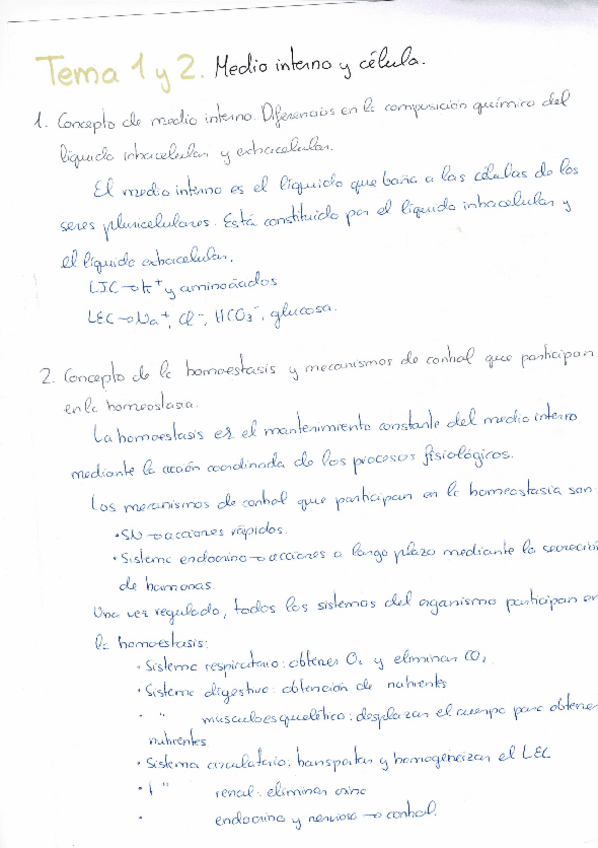 Tema 1 y 2. Medio interno y célula.
1. Concepto de medio interno. Diferencias en la composición química del
líquido intracelular y extracelular.
El medio interno es el líquido que baña a las células de los
seres pluricelulares. Está constituido por el líquido intracelular y
el líquido extracelular.
LIC → K+ y aminoácidos
LEC → Na+, Cl-, HCO3-, glucosa.
2. Concepto de la homeostasis y mecanismos de control que participan
en la homeostasia.
La homeostasis es el mantenimiento constante del medio interno
mediante la acción coordinada de los procesos fisiológicos.
Los mecanismos de control que participan en la homeostasia son:
• SN → acciones rápidas.
• Sistema endocrino → acciones a largo plazo mediante la secreció
de hormonas.
Una vez regulado, todos los sistemas del organismo participan en
la homeostasis:
• Sistema respiratorio: obtener O2 y eliminar CO2.
• Sistema digestivo: obtención de nutrientes
• " musculoesquelético: desplazar el cuerpo para obtener
nutrientes
• Sistema circulatorio: transportar y homogeneizar el LEC
• " renal: eliminar orina
• endocrino y nervioso → control.